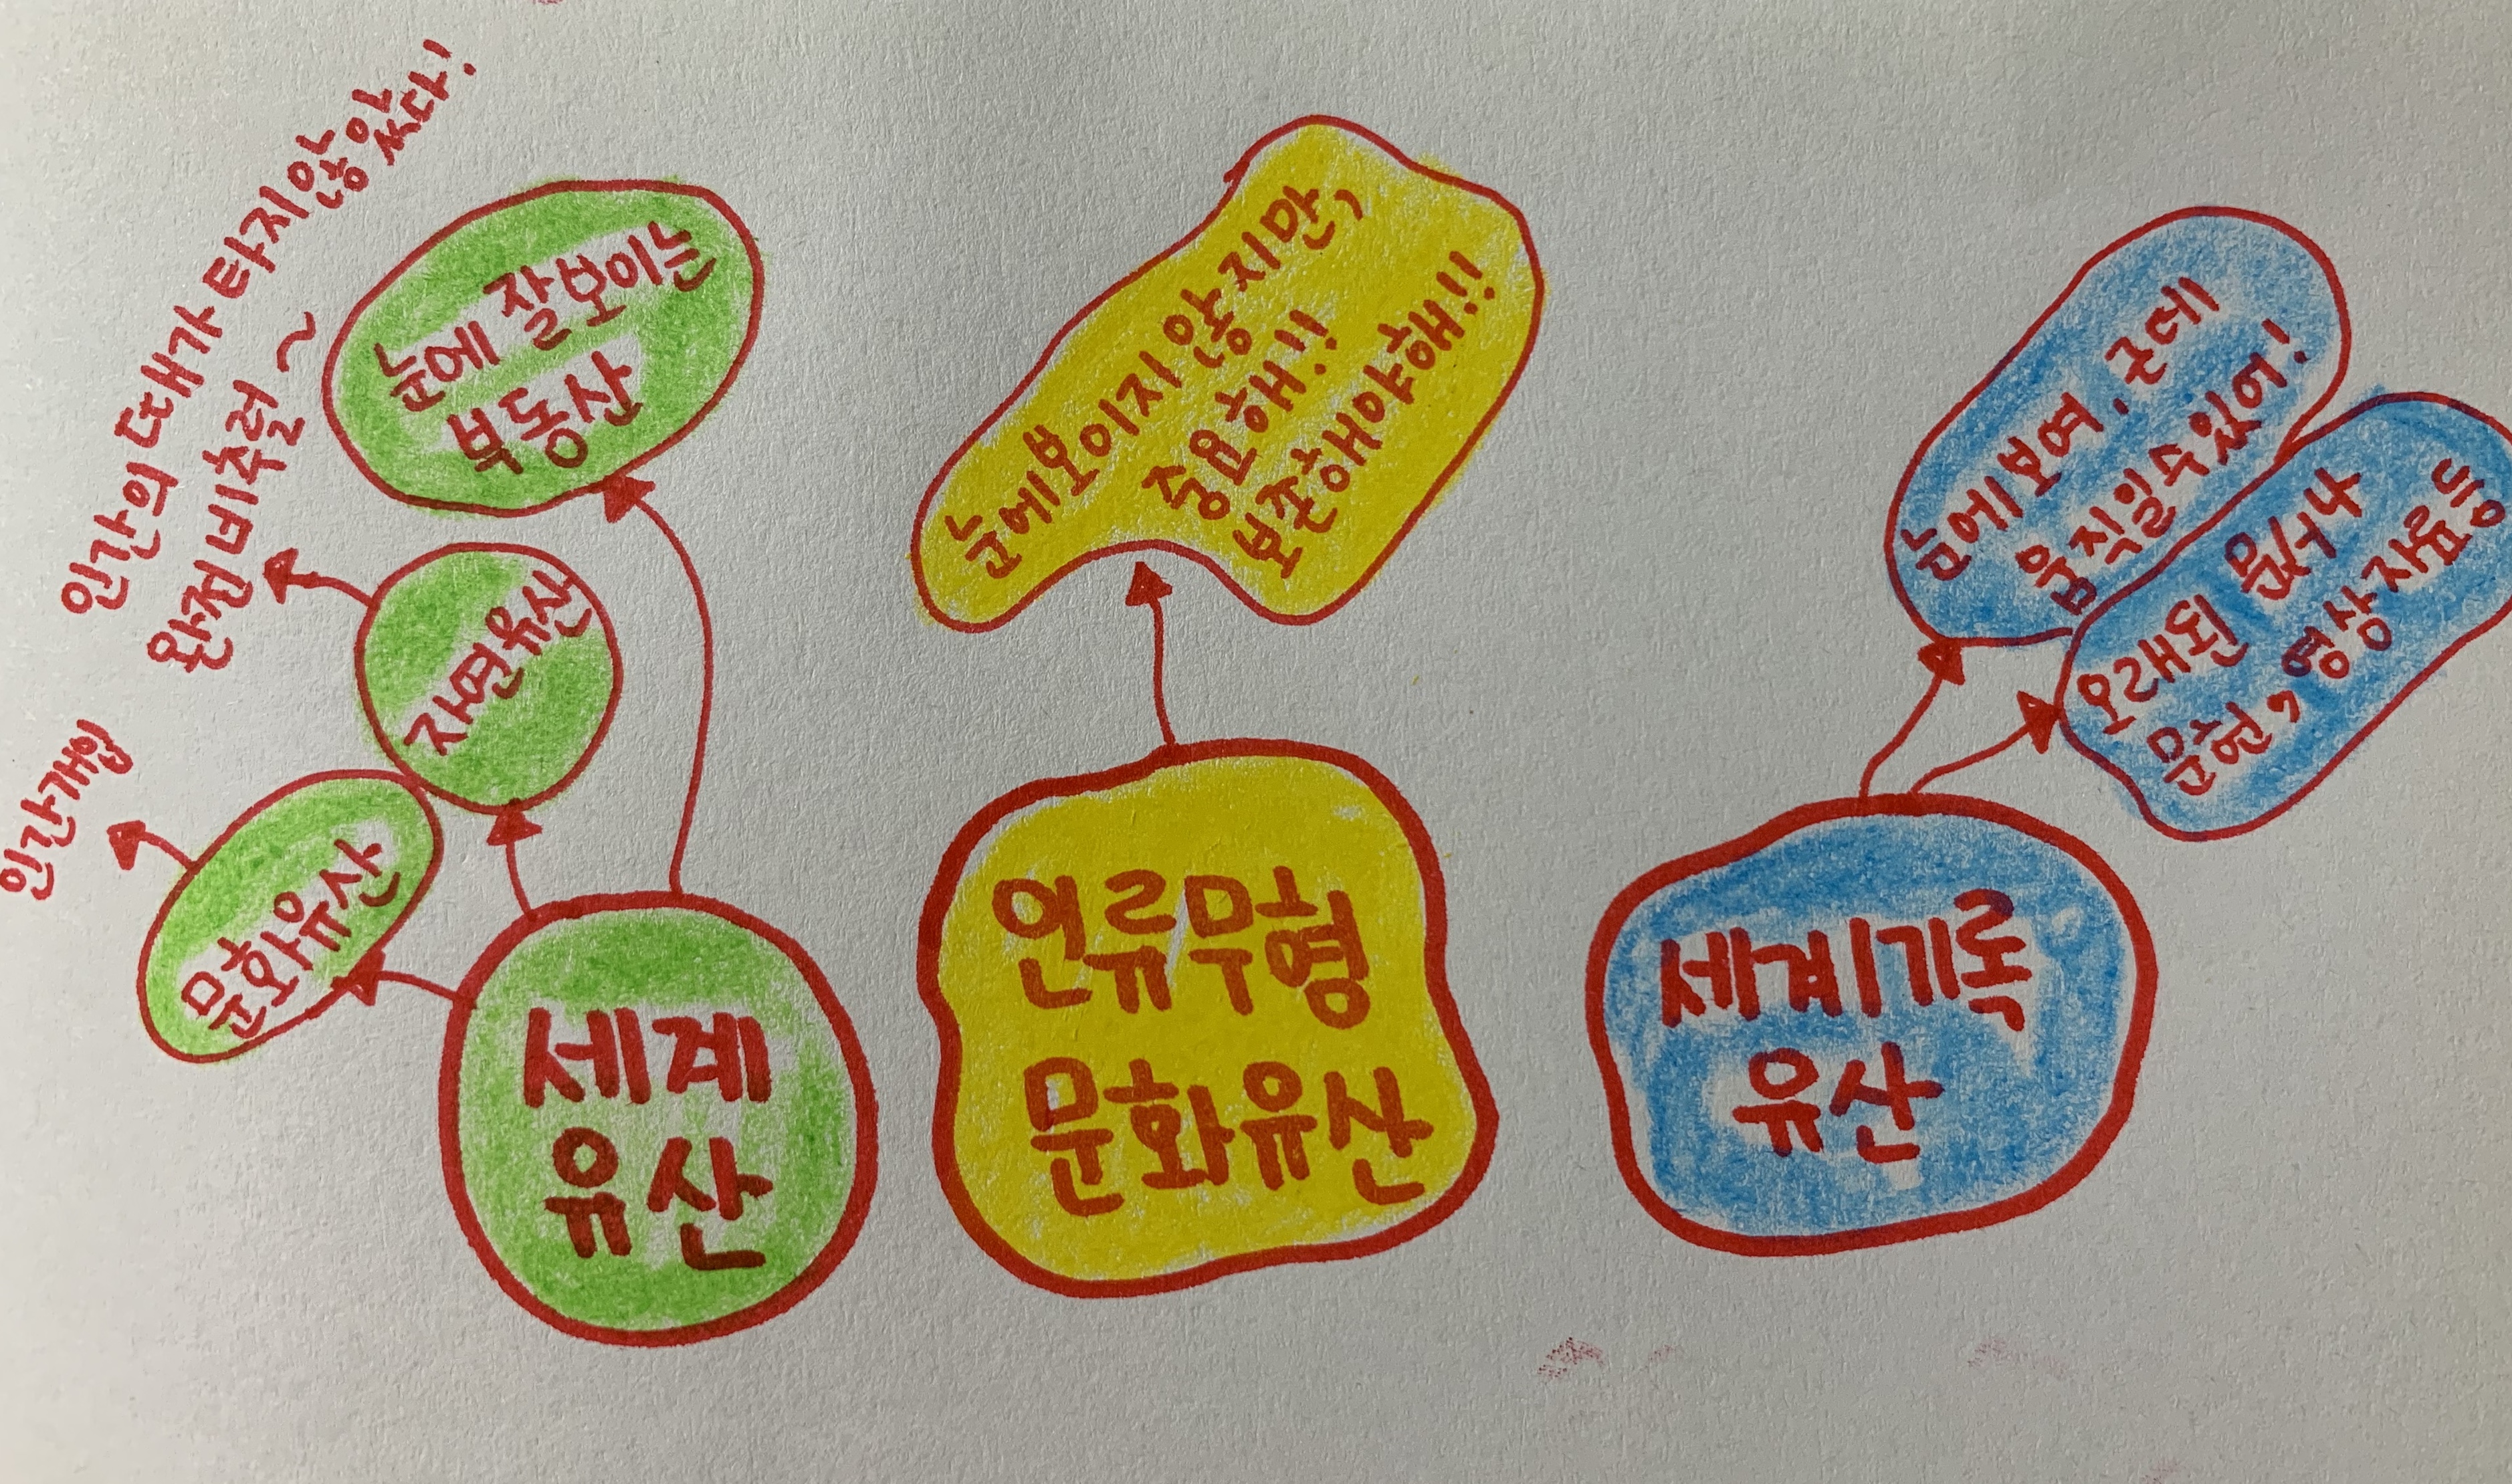 인간의 때가 타지않았다!
완전비추럴~
눈에 잘보이는
부동산
자연유산
인간개입
문화유산
세계
유산
눈에보이지 않지만,
중요해!!
보존해야해!!
인류무형
문화유산
눈에보여. 근데
움직일수있어!
오래된 문서나
문헌, 영상자료등
세계기록
유산